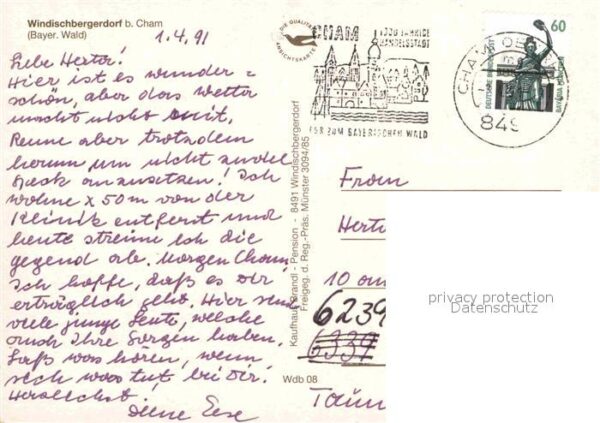 Windischbergerdorf b. Cham
(Bayer. Wald)
1.4.91
Liebe Herta!
Hier ist es wunder=
schön, aber das Wetter
macht nicht mit.
Renne aber trotzdem
herum um nicht zuviel
Speck anzusetzen! Ich
wohne x 50 m von der
Klinik entfernt und
heute streune ich die
Gegend ab. Morgen Cham.
Ich hoffe, daß es Dir
erträglich geht. Hier sind
viele junge Leute, welche
auch Ihre Sorgen haben.
Laß was hören, wenn
sich was tut bei Dir!
Herzlichst!
Deine
DIE QUALITÄTS
ANSICHTSKARTE
Kaufhaus Brandl - Pension - 8491 Windischbergerdorf
Freigeg. d. Reg.-Präs. Münster 3094/85
Wdb 08
CHAM
HANDELSSTADT
TOR ZUM BAYERISCHEN WALD
CHAM, OB
849
60
DEUTSCHE BUNDESPOST
BAVARIA MÜNCHEN
Frau
Hert
10 am
6239
6339
Taun
privacy protection
Datenschutz